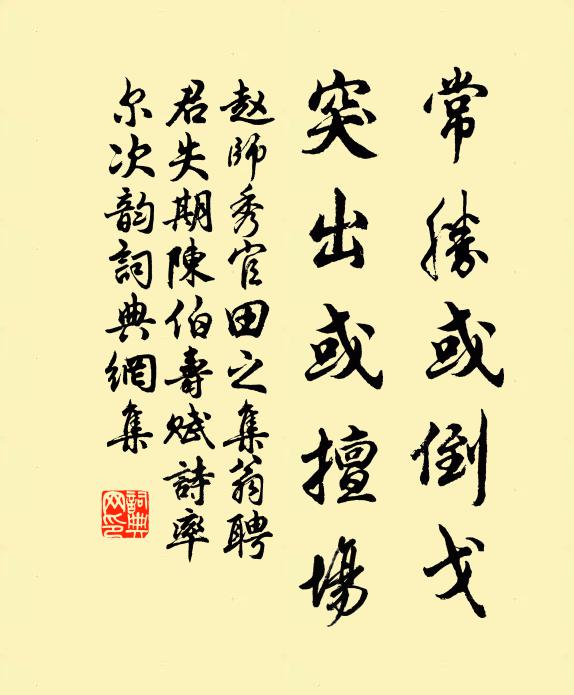 常勝或倒戈
突出或擅場
赵師秀官田之集翁聘
君失期陳伯壽賦詩率
尔次韵詞典網集
詞典
网印